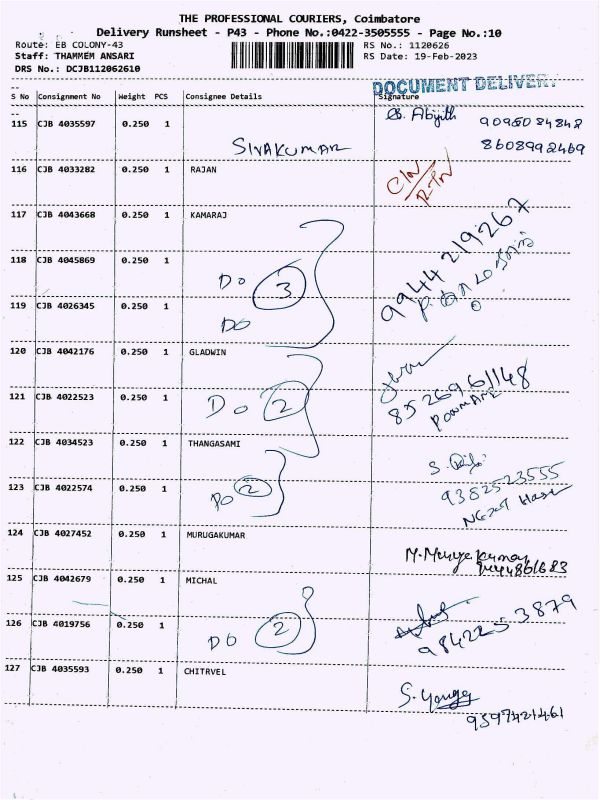 THE PROFESSIONAL COURIERS, Coimbatore
Delivery Runsheet - P43 - Phone No.:0422-3505555 - Page No.:10
Route: EB COLONY-43 RS No.: 1120626
Staff: THAMMEM ANSARI RS Date: 19-Feb-2023
DRS No.: DCJB112062610
DOCUMENT DELIVERY
--
S No Consignment No Weight PCS Consignee Details Signature
--
115 CJB 4035597 0.250 1 SIVAKUMAR S. Abijith
8608992469
116 CJB 4033282 0.250 1 RAJAN
117 CJB 4043668 0.250 1 KAMARAJ
9944219267
118 CJB 4045869 0.250 1 DO 3
119 CJB 4026345 0.250 1 DO
120 CJB 4042176 0.250 1 GLADWIN
8526961148
121 CJB 4022523 0.250 1 DO 2
122 CJB 4034523 0.250 1 THANGASAMI
9382523555
123 CJB 4022574 0.250 1 DO 2
124 CJB 4027452 0.250 1 MURUGAKUMAR
125 CJB 4042679 0.250 1 MICHAL
126 CJB 4019756 0.250 1 DO 2
9842253879
127 CJB 4035593 0.250 1 CHITRVEL
9597421461